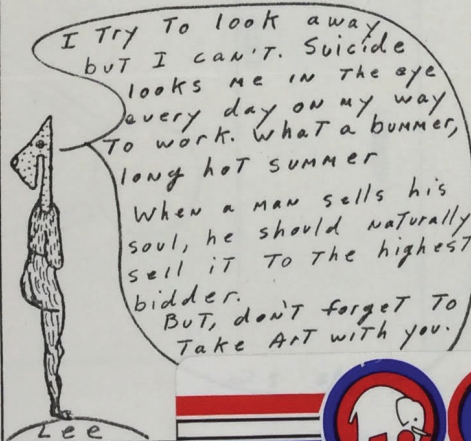 I Try To look away
buT I can'T. Suicide
looks me in The eye
every day on my way
To work. WhaT a bummer,
long hoT summer
When a man sells his
soul, he should naTurally
sell iT To The highesT
bidder.
BuT, don'T forgeT To
Take ArT with you.
Lee